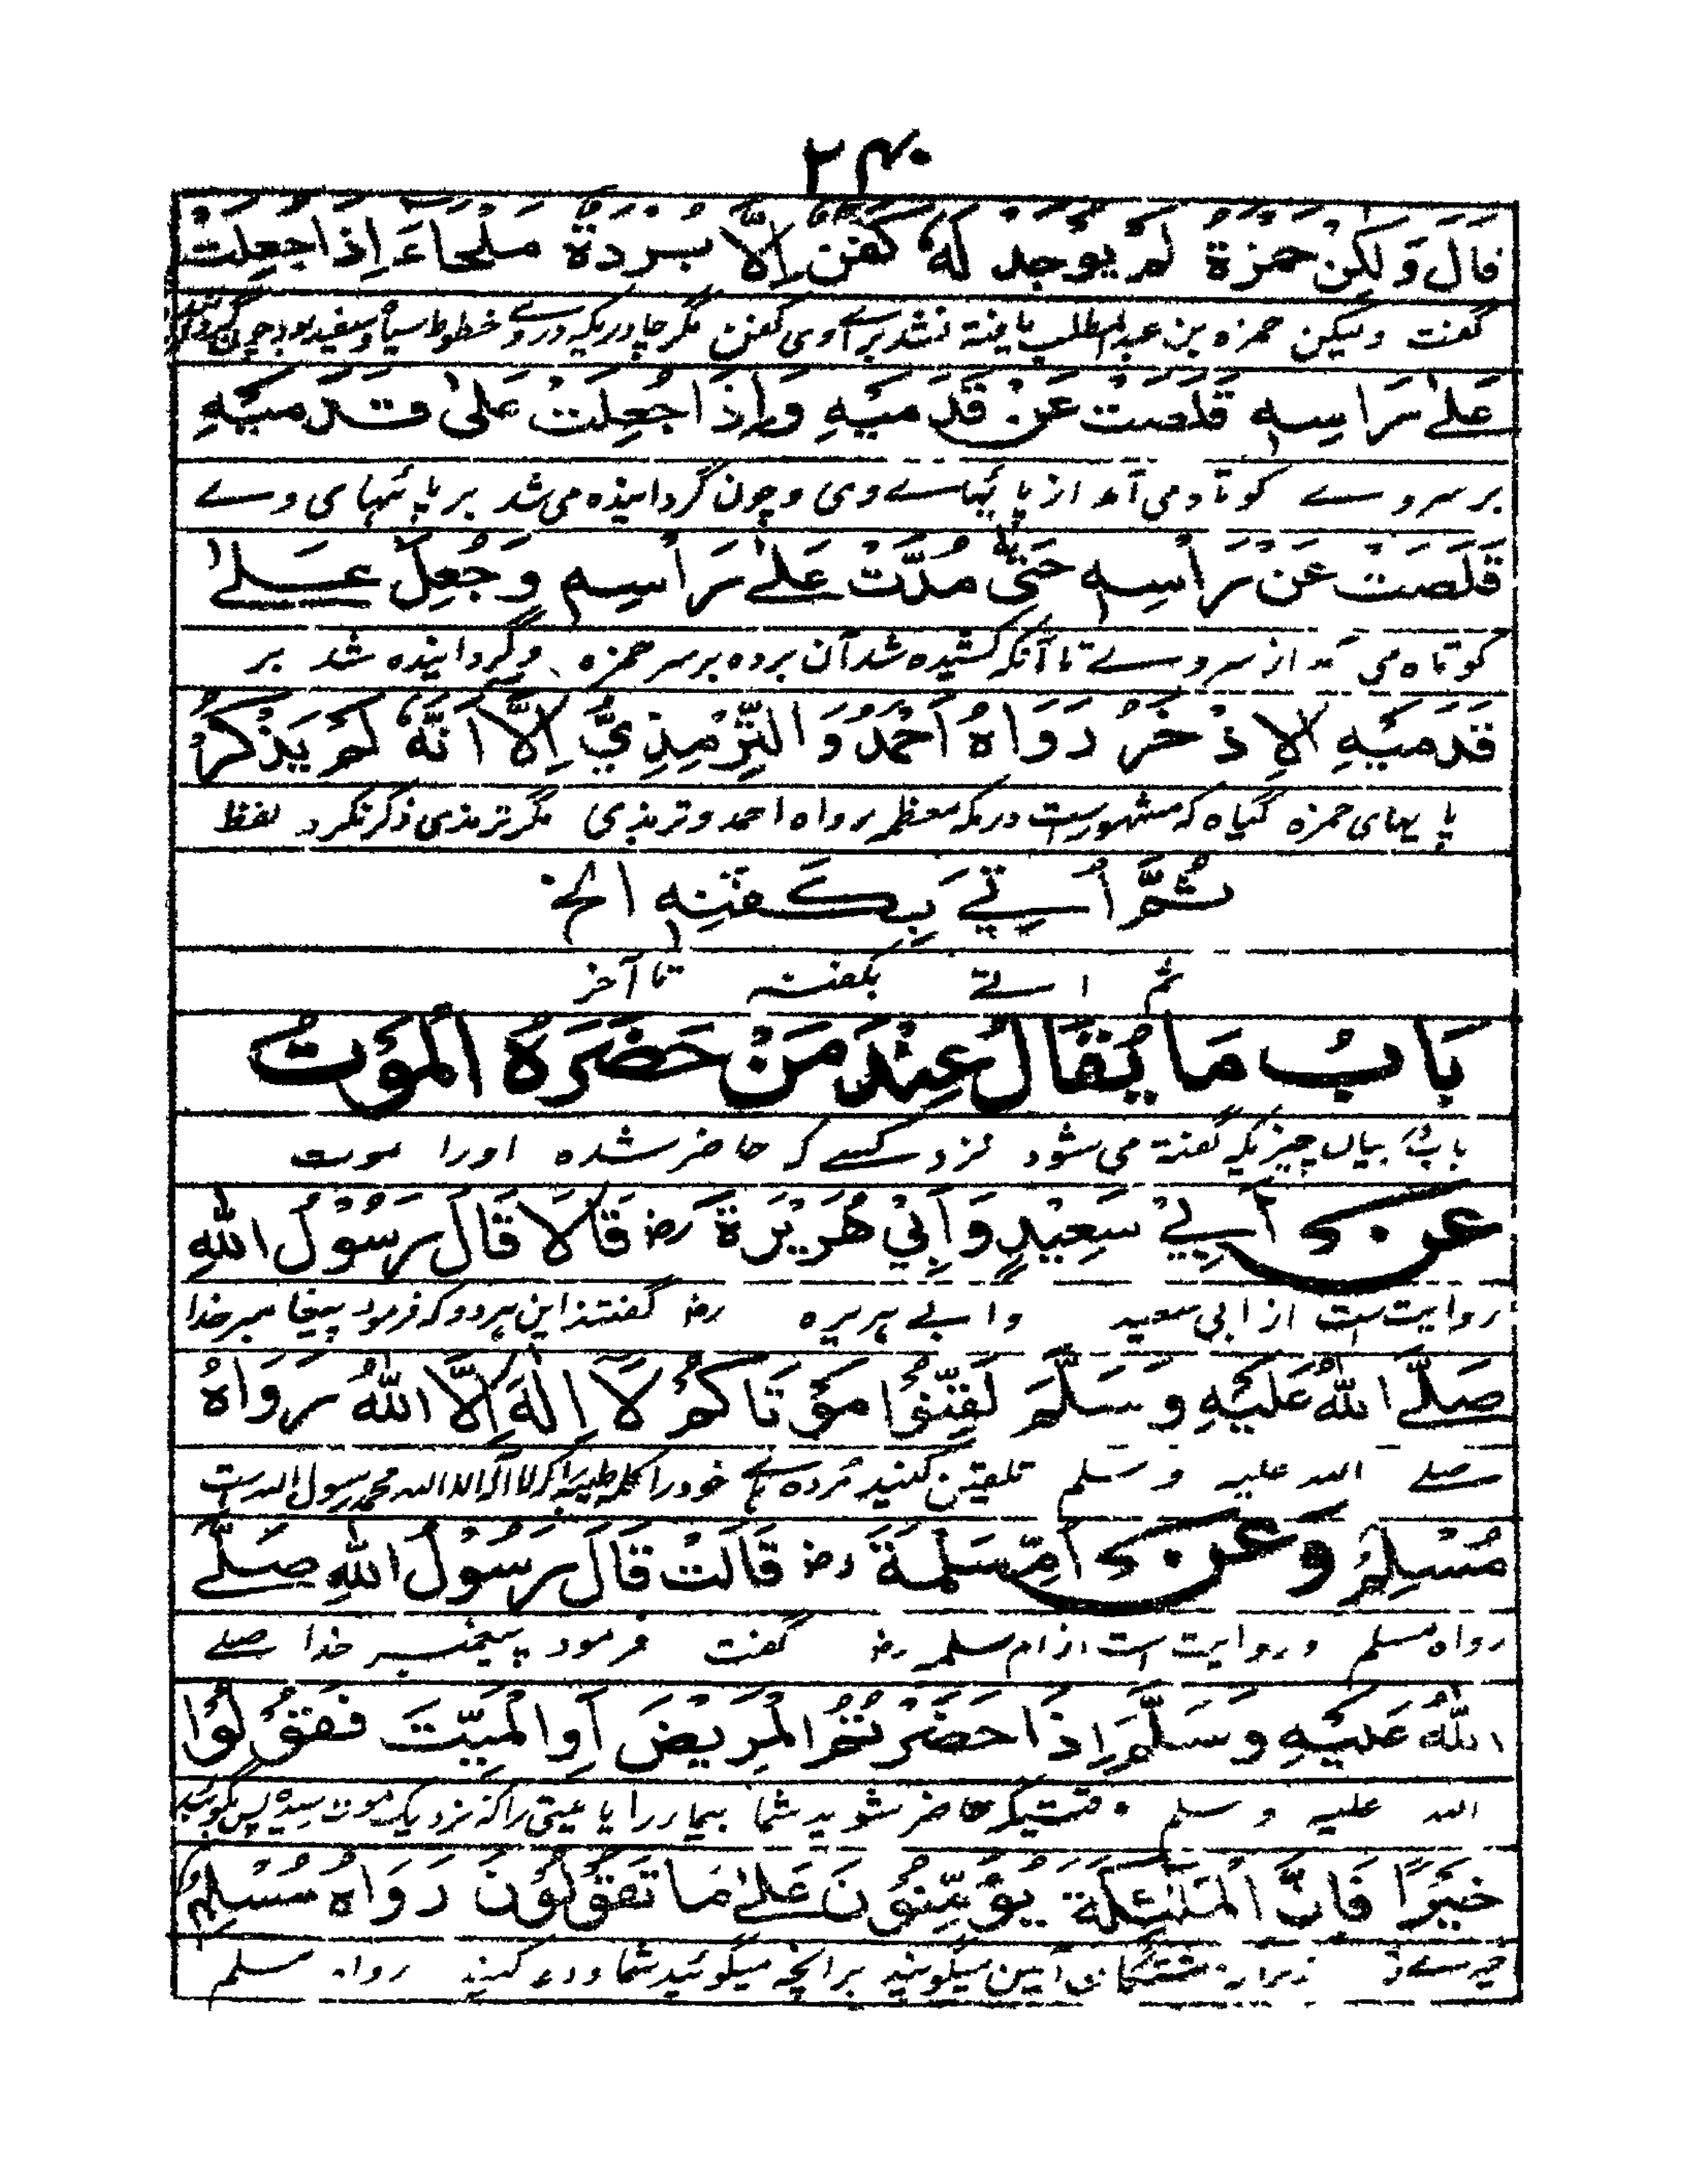 ۲۴۰
قَالَ وَلٰكِنْ حَمْزَةُ لَمْ يُوْجَدْ لَهٗ كَفَنٌ اِلَّا بُرْدَةٌ مَلْحَاءَ اِذَا جُعِلَتْ
گفت ولیکن حمزه بن عبدالمطلب یافته نشد برائے وی کفن مگر چادریکه در وے خطوط سیاه وسفید بود چون
عَلٰى رَاسِهٖ قَلَصَتْ عَنْ قَدَمَيْهِ وَاِذَا جُعِلَتْ عَلٰى قَدَمَيْهِ
بر سر وے کوتاه می آمد از پائیهاے وی وچون گردانیده می شد بر پائیهای وے
قَلَصَتْ عَنْ رَأْسِهٖ حَتّٰى مُدَّتْ عَلٰى رَأْسِهٖ وَجُعِلَ عَلٰى
کوتاه می آمد از سر وے تا آنکه کشیده شد آن برده بر سر حمزه وگردانیده شد بر
قَدَمَيْهِ الْاِذْخَرُ رَوَاهُ اَحْمَدُ وَالتِّرْمِذِيُّ اِلَّا اَنَّهٗ لَمْ يَذْكُرْ
پایهای حمزه گیاه که مشهورست در مکه معظمه رواه احمد وترمذی مگر ترمذی ذکر نکرد لفظ
ثُمَّ اُتِيَ بِكَفَنِهٖ الخ
ثم اتے بکفنه تا آخر
بَابُ مَا يُقَالُ عِنْدَ مَنْ حَضَرَهُ الْمَوْتُ
باب بیان چیزیکه گفته می شود نزد کسے که حاضر شده اورا موت
عَنْ اَبِيْ سَعِيْدٍ وَاَبِيْ هُرَيْرَةَ رض قَالَا قَالَ رَسُوْلُ اللهِ
روایت ست از ابی سعید وابے هریره رض گفتند این هردو که فرمود پیغامبر خدا
صَلَّے اللهُ عَلَيْهِ وَسَلَّمَ لَقِّنُوْا مَوْتَاكُمْ لَا اِلٰهَ اِلَّا اللهُ رَوَاهُ
صلے الله علیه وسلم تلقین کنید مرده هائے خود را کلمه طیبه را که لا اله الا الله محمد رسول الله است
مُسْلِمٌ وَعَنْ اُمِّ سَلَمَةَ رض قَالَتْ قَالَ رَسُوْلُ اللهِ صَلَّے
رواه مسلم وروایت ست از ام سلمه رض گفت فرمود پیغمبر خدا صلے
اللهُ عَلَيْهِ وَسَلَّمَ اِذَا حَضَرْتُمُ الْمَرِيْضَ اَوِ الْمَيِّتَ فَقُوْلُوْا
الله علیه وسلم وقتیکه حاضر شوید شما بیمار را یا میتی را که نزدیک موت رسیده پس بگوئید
خَيْرًا فَاِنَّ الْمَلٰئِكَةَ يُؤَمِّنُوْنَ عَلٰى مَا تَقُوْلُوْنَ رَوَاهُ مُسْلِمٌ
زیراکه فرشتگان آمین میگویند بر آنچه میگوئید شما ودعا کنید رواه مسلم